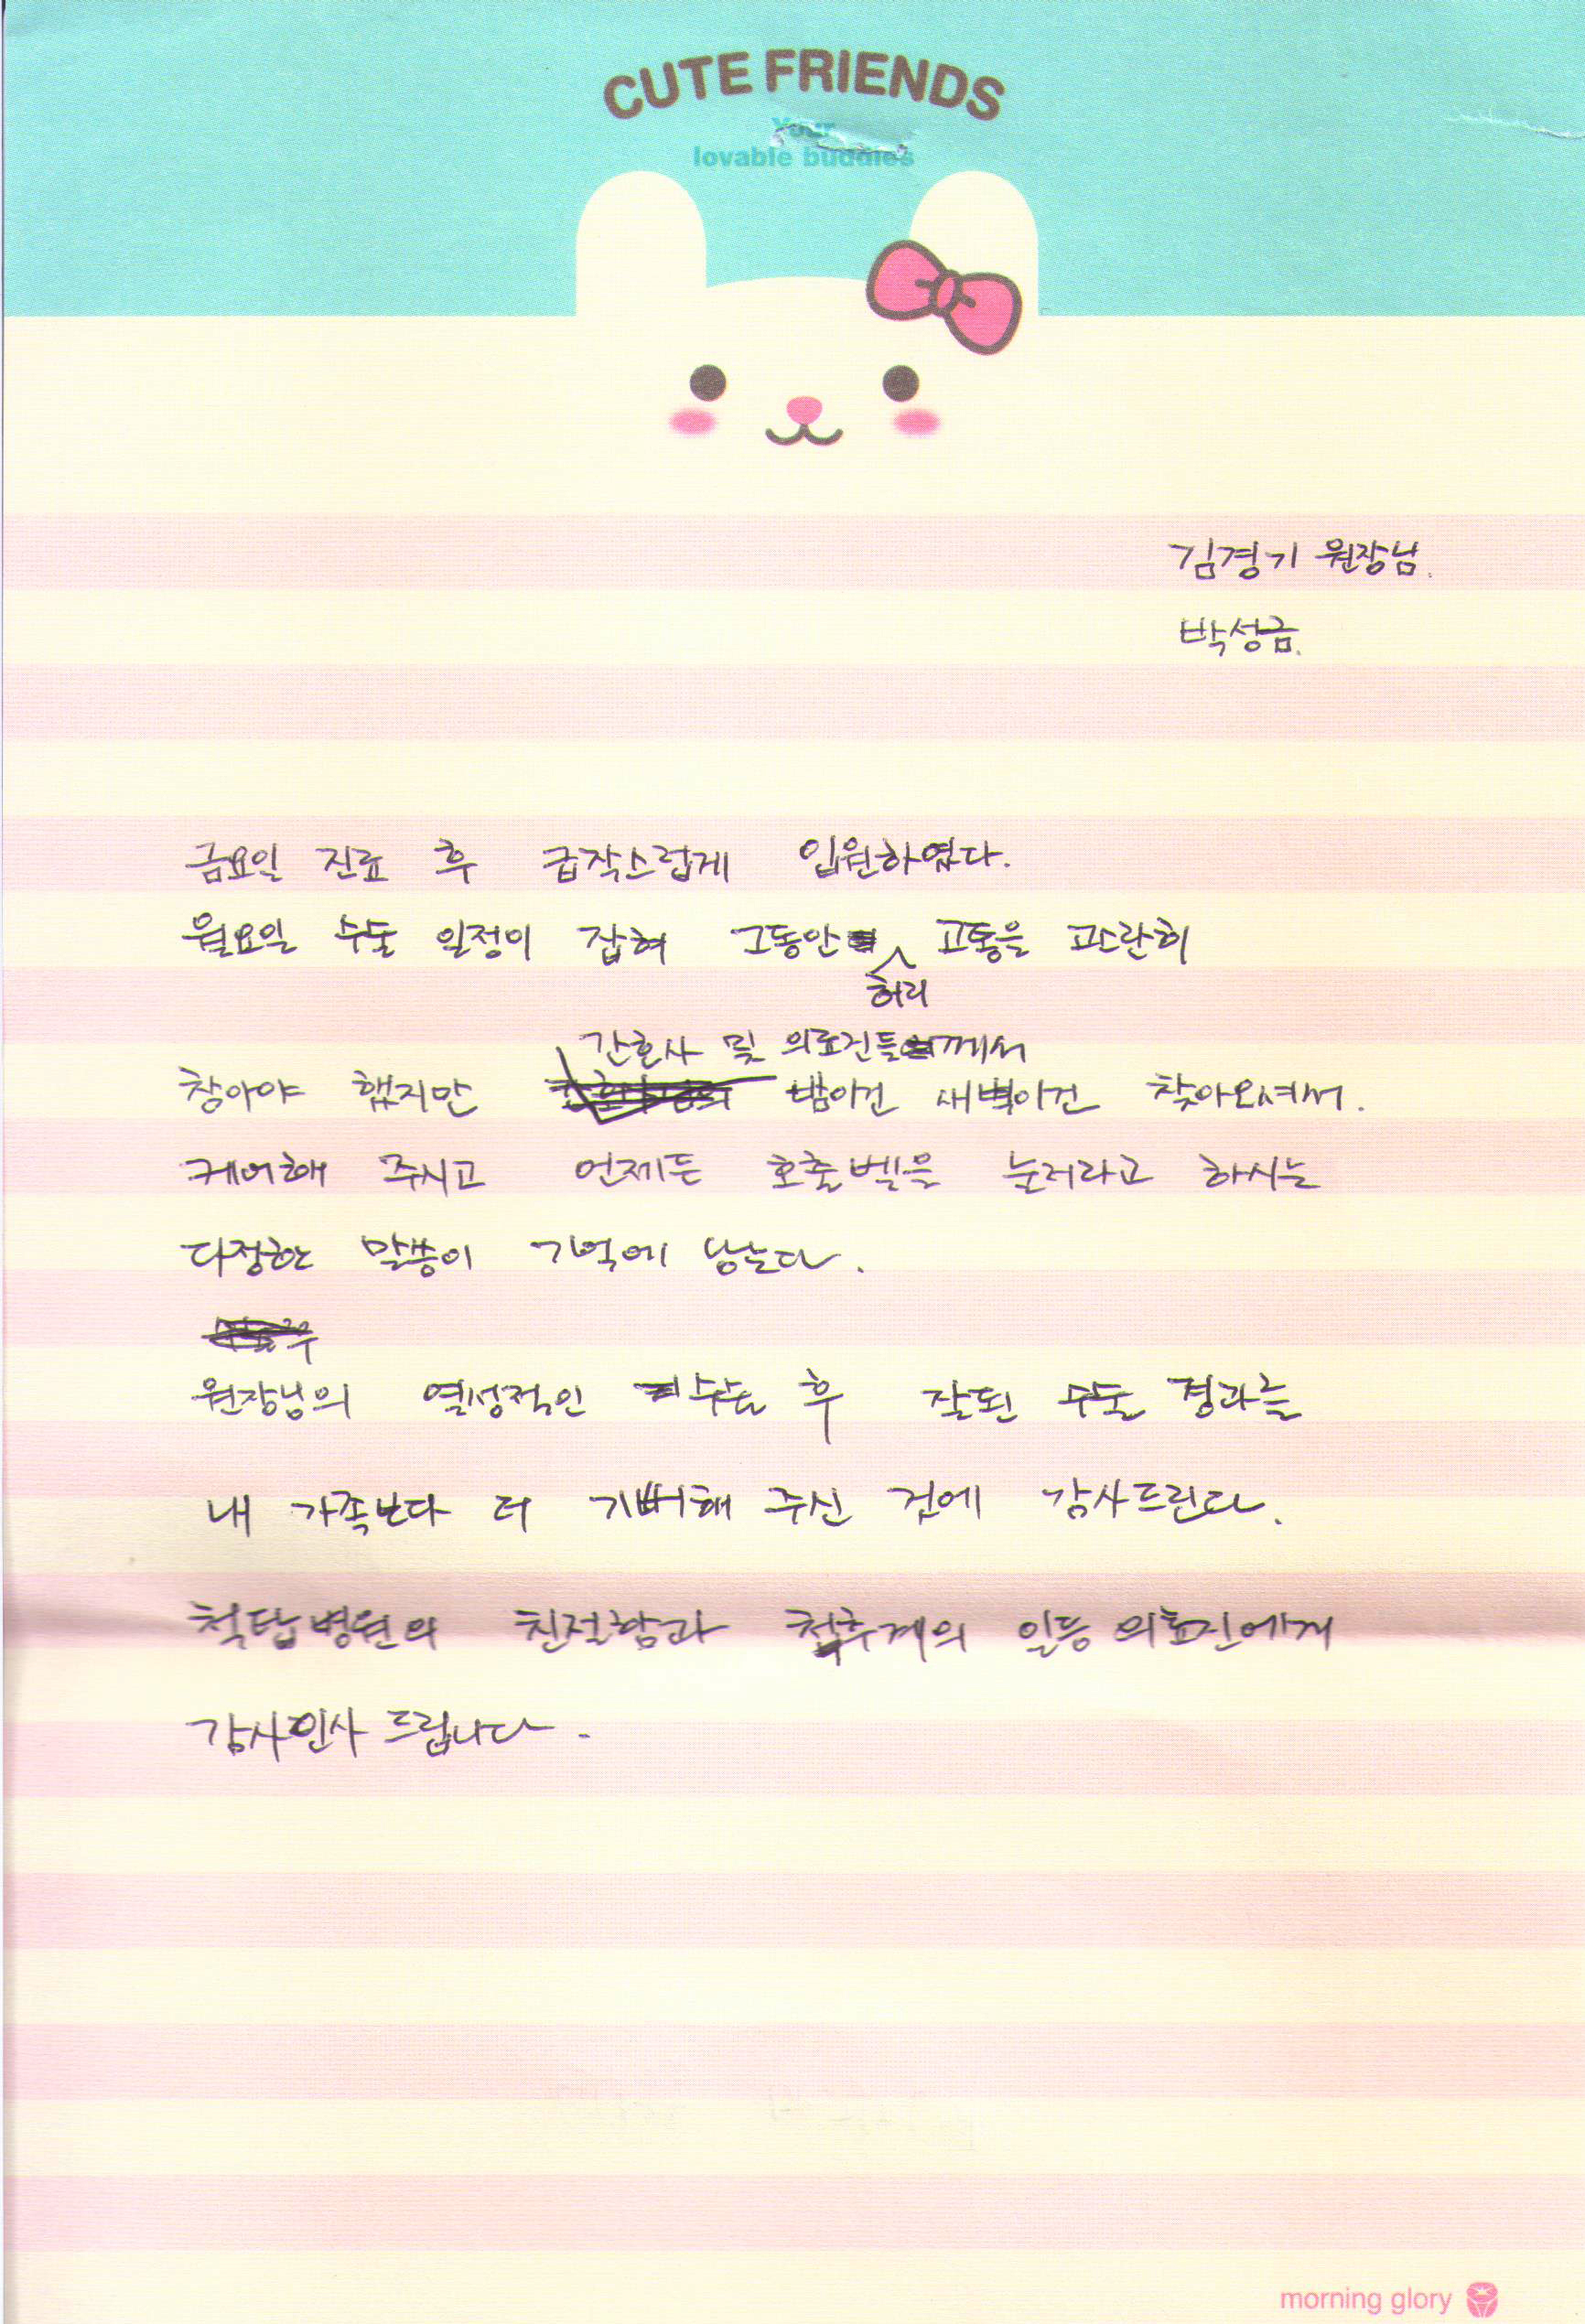 CUTE FRIENDS
Your
lovable buddies
김경기 원장님.
박성금.
금요일 진료 후 급작스럽게 입원하였다.
월요일 수술 일정이 잡혀 그동안 허리 고통을 고스란히
간호사 및 의료진들께서
참아야 했지만 밤이건 새벽이건 찾아오셔서.
케어해 주시고 언제든 호출벨을 눌러라고 하시는
다정한 말씀이 기억에 남는다.
원장님의 열성적인 수술 후 잘된 수술 결과를
내 가족보다 더 기뻐해 주신 것에 감사드린다.
척탑병원의 친절함과 척추계의 일등 의료진에게
감사인사 드립니다.
morning glory